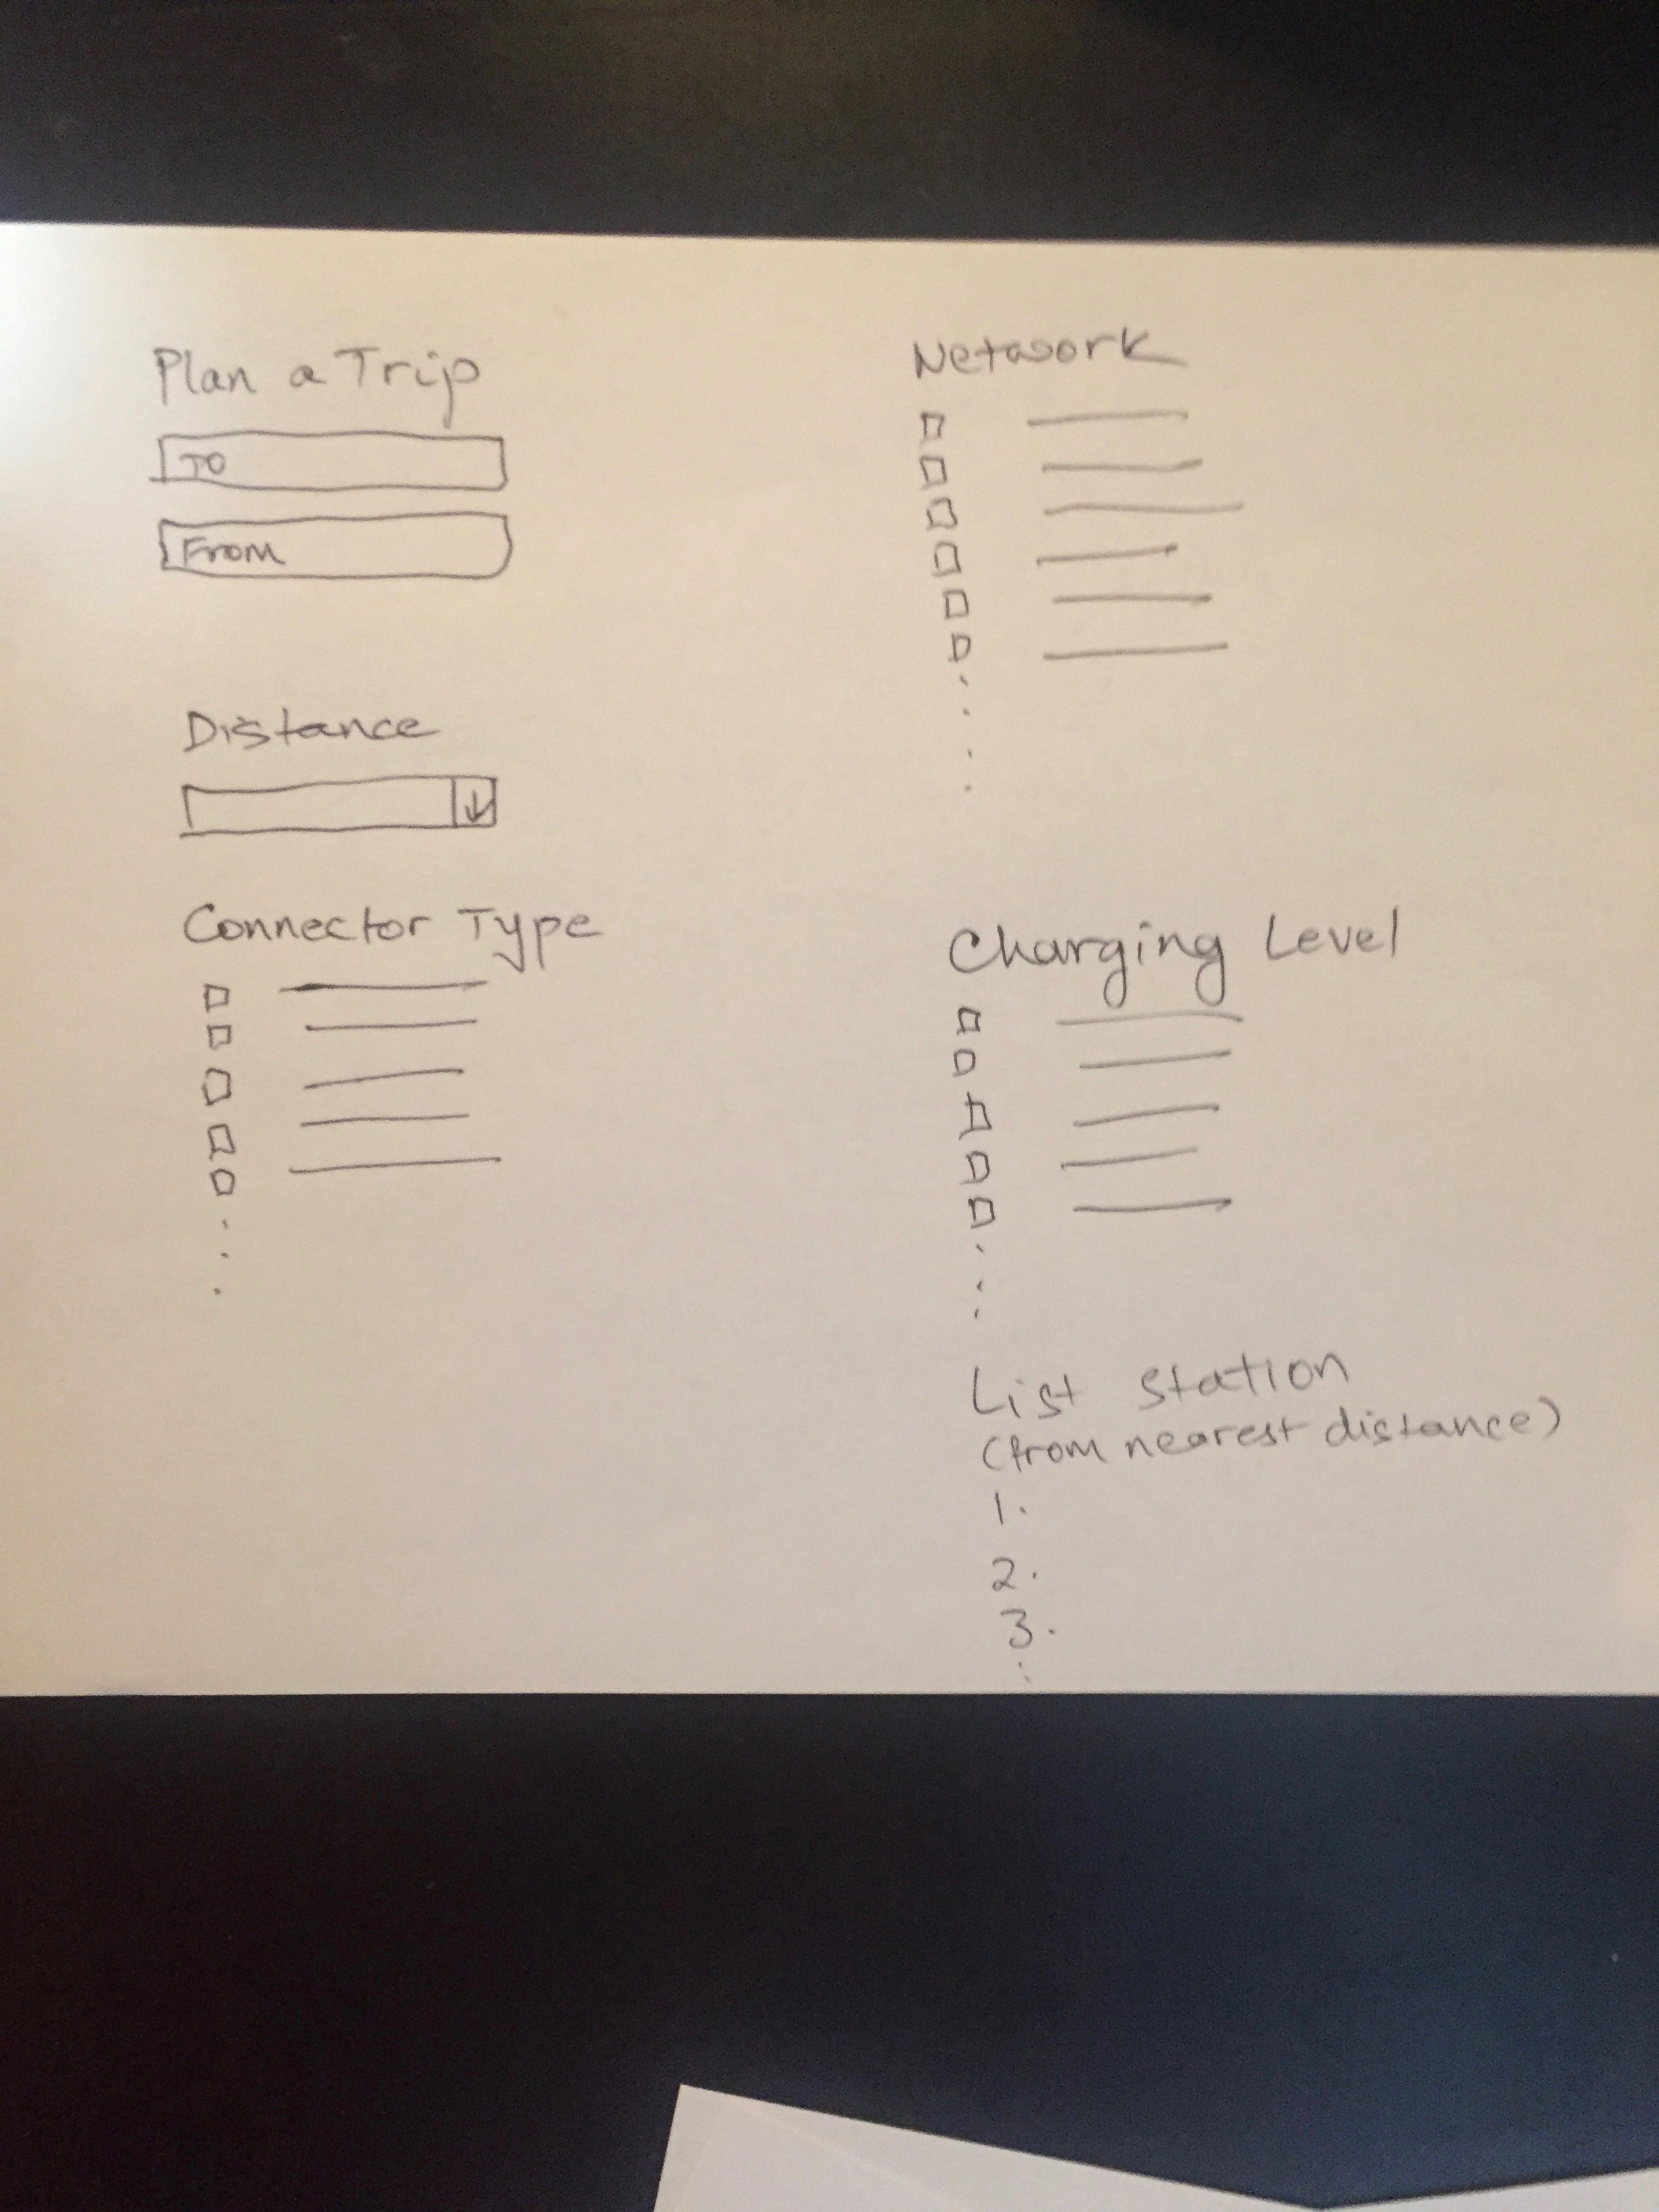 Plan a Trip
TO
From
Distance
Connector Type
Network
Charging Level
List Station
(from nearest distance)
1.
2.
3.